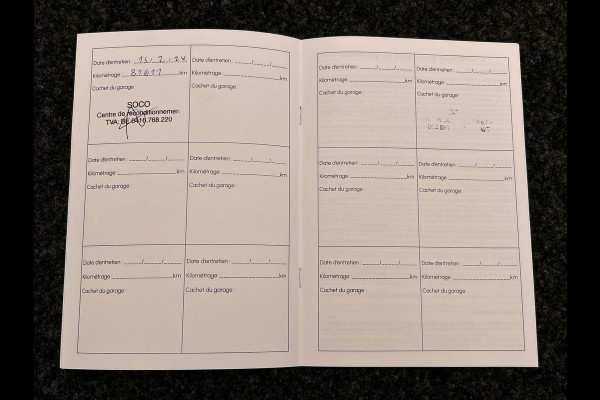 Date d'entretien : 15 / 2 / 24
Kilométrage : km
Cachet du garage :
SOCO
Centre de reconditionnement
Date d'entretien : __/__/__
Kilométrage : km
Cachet du garage :
Date d'entretien : __/__/__
Kilométrage : km
Cachet du garage :
Date d'entretien : __/__/__
Kilométrage : km
Cachet du garage :
Date d'entretien : __/__/__
Kilométrage : km
Cachet du garage :
Date d'entretien : __/__/__
Kilométrage : km
Cachet du garage :
Date d'entretien : __/__/__
Kilométrage : km
Cachet du garage :
Date d'entretien : __/__/__
Kilométrage : km
Cachet du garage :
Date d'entretien : __/__/__
Kilométrage : km
Cachet du garage :
Date d'entretien : __/__/__
Kilométrage : km
Cachet du garage :
Date d'entretien : __/__/__
Kilométrage : km
Cachet du garage :
Date d'entretien : __/__/__
Kilométrage : km
Cachet du garage :